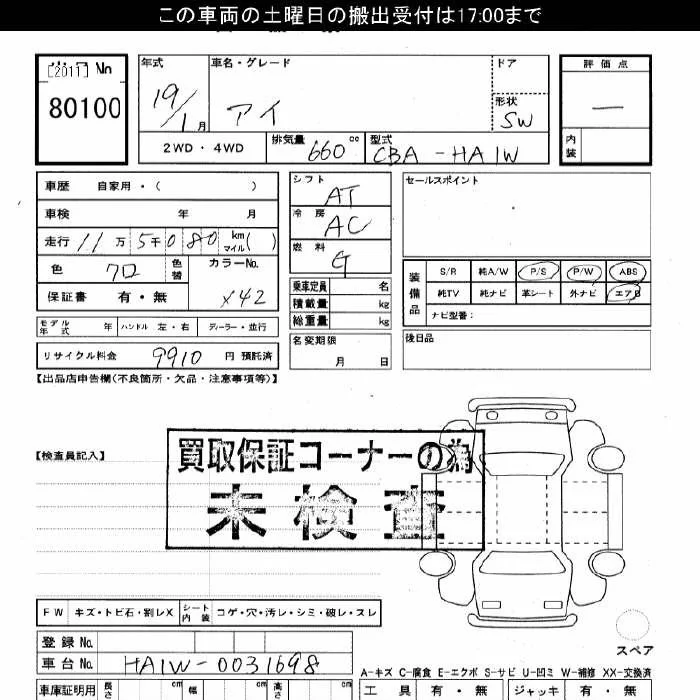 この車両の土曜日の搬出受付は17:00まで
[2011] No
80100
年式 車名・グレード ドア 評価点
19/1月 アイ 形状 SW —
2WD・4WD 排気量 660 cc 型式 CBA-HA1W 内装
車歴 自家用・( )
車検 年 月
走行 11万5千080 km マイル( )
色 クロ 色替 カラーNo. X42
保証書 有・無
モデル年式 年 ハンドル 左・右 ディーラー・並行
リサイクル料金 9910 円 預託済
シフト AT
冷房 AC
燃料 G
乗車定員 名
積載量 kg
総重量 kg
名変期限 月 日
セールスポイント
装備品 S/R 純A/W P/S P/W ABS
純TV 純ナビ 革シート 外ナビ エアB
ナビ型番:
後日品
【出品店申告欄(不良箇所・欠品・注意事項等)】
【検査員記入】
買取保証コーナーの為
未検査
FW キズ・トビ石・割レX シート内装 コゲ・穴・汚レ・シミ・破レ・スレ
登録No.
車台No. HA1W-0031698
スペア
A-キズ C-腐食 E-エクボ S-サビ U-凹ミ W-補修 XX-交換済
車庫証明用 長さ cm 幅 cm 高さ cm 工具 有・無 ジャッキ 有・無